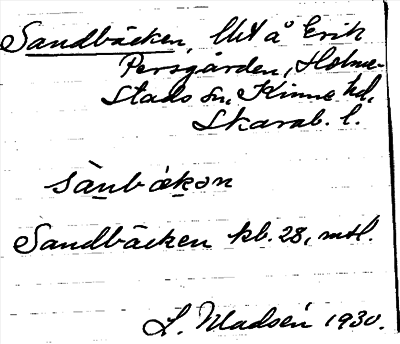 Sandbäcken, Utä å Erik
Persgården, Holme-
stads sn, Kinne hd,
Skarab. l.
sanbækən
Sandbäcken kb. 28, mtl.
L. Madsén 1930.